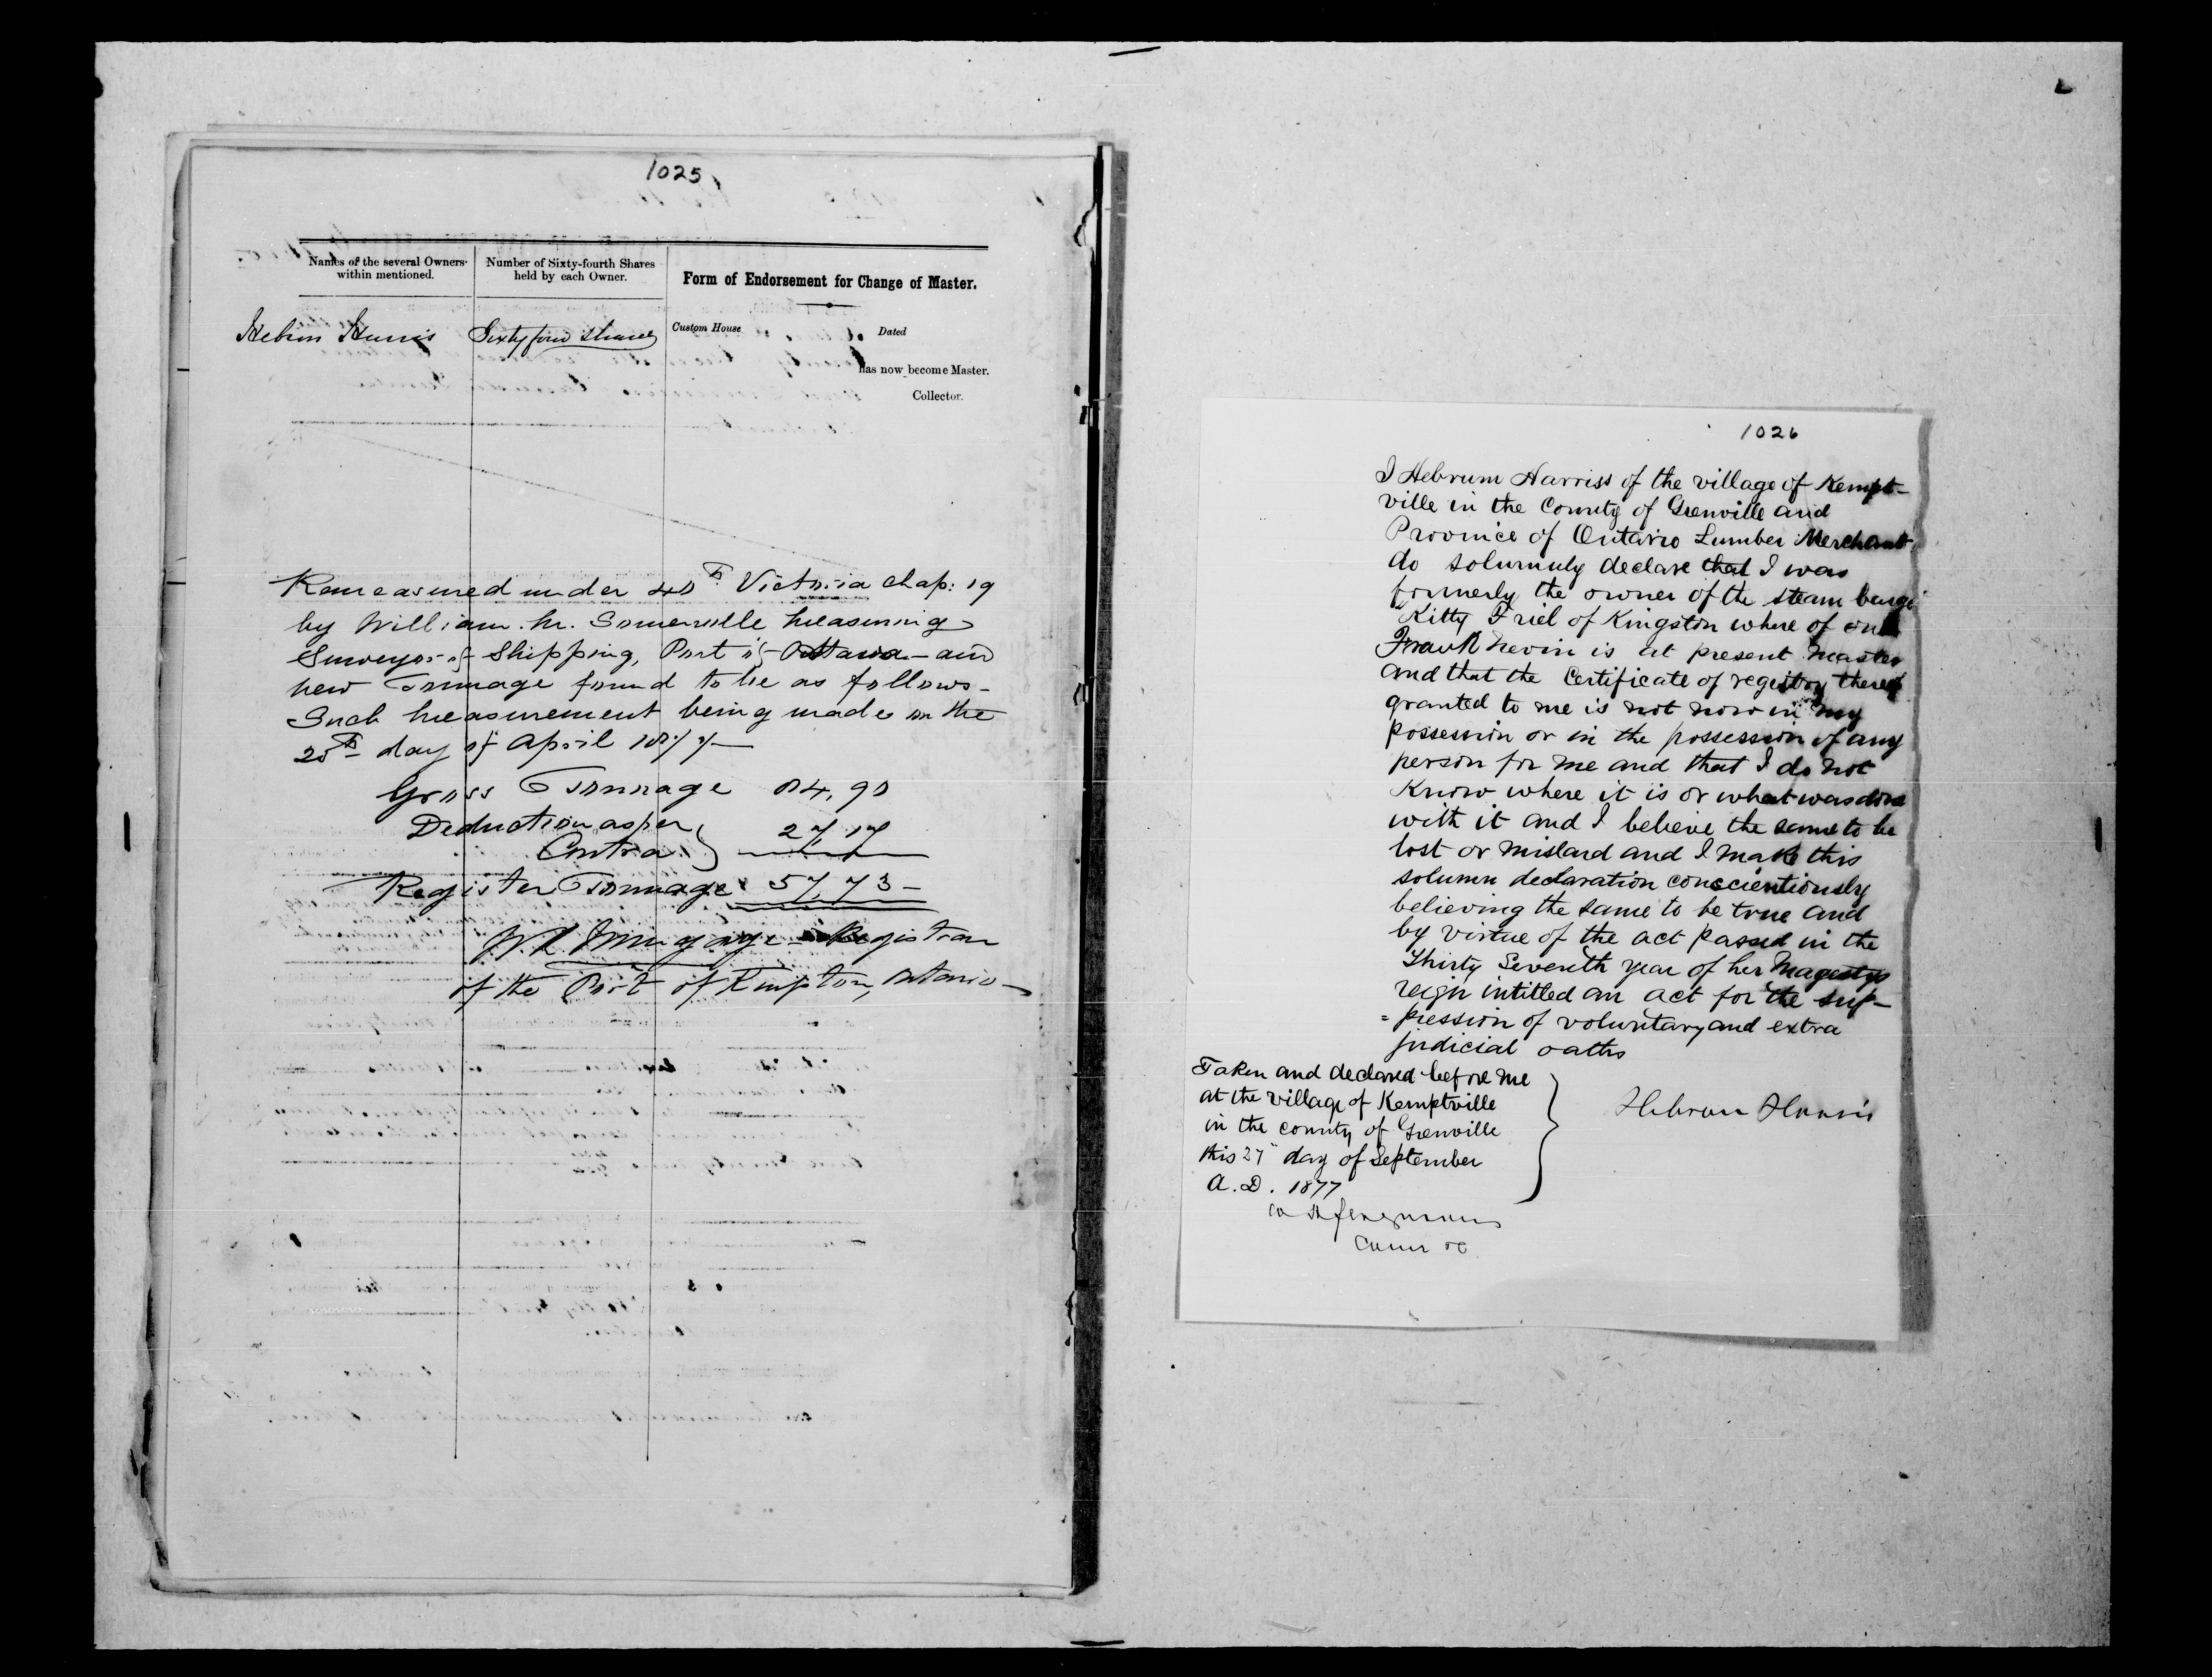 1025
Names of the several Owners within mentioned.
Number of Sixty-fourth Shares held by each Owner.
Form of Endorsement for Change of Master.
Hebron Harris
Sixty four shares
Custom House
Dated
has now become Master.
Collector.
Remeasured under 40th Victoria Chap: 19
by William. M. Somerville Measuring
Surveyor of Shipping, Port of Ottawa - and
new Tonnage found to be as follows -
Such measurement being made on the
25th day of April 1877 -
Gross Tonnage 84,90
Deduction as per
Contra } 27,17
Register Tonnage 57,73 -
Registrar
of the Port of Kingston, Ontario -
1026
I Hebrum Harriss of the village of Kempt-
ville in the County of Grenville and
Province of Ontario Lumber Merchant
do solumnly declare that I was
formerly the owner of the steam barge
"Kitty Friel of Kingston where of one
Frank Nevin is at present Master
and that the Certificate of regestry thereof
granted to me is not now in my
possession or in the possession of any
person for me and that I do not
Know where it is or what was done
with it and I believe the same to be
lost or mislaid and I make this
solumn declaration conscientiously
believing the same to be true and
by virtue of the act passed in the
Thirty Seventh year of her Magestys
reign intitled an act for the sup-
= pression of voluntary and extra
judicial oaths
Taken and declared before me
at the village of Kemptville
in the county of Grenville
this 27" day of September
A.D. 1877
Hebron Harris
Ferguson
Comr